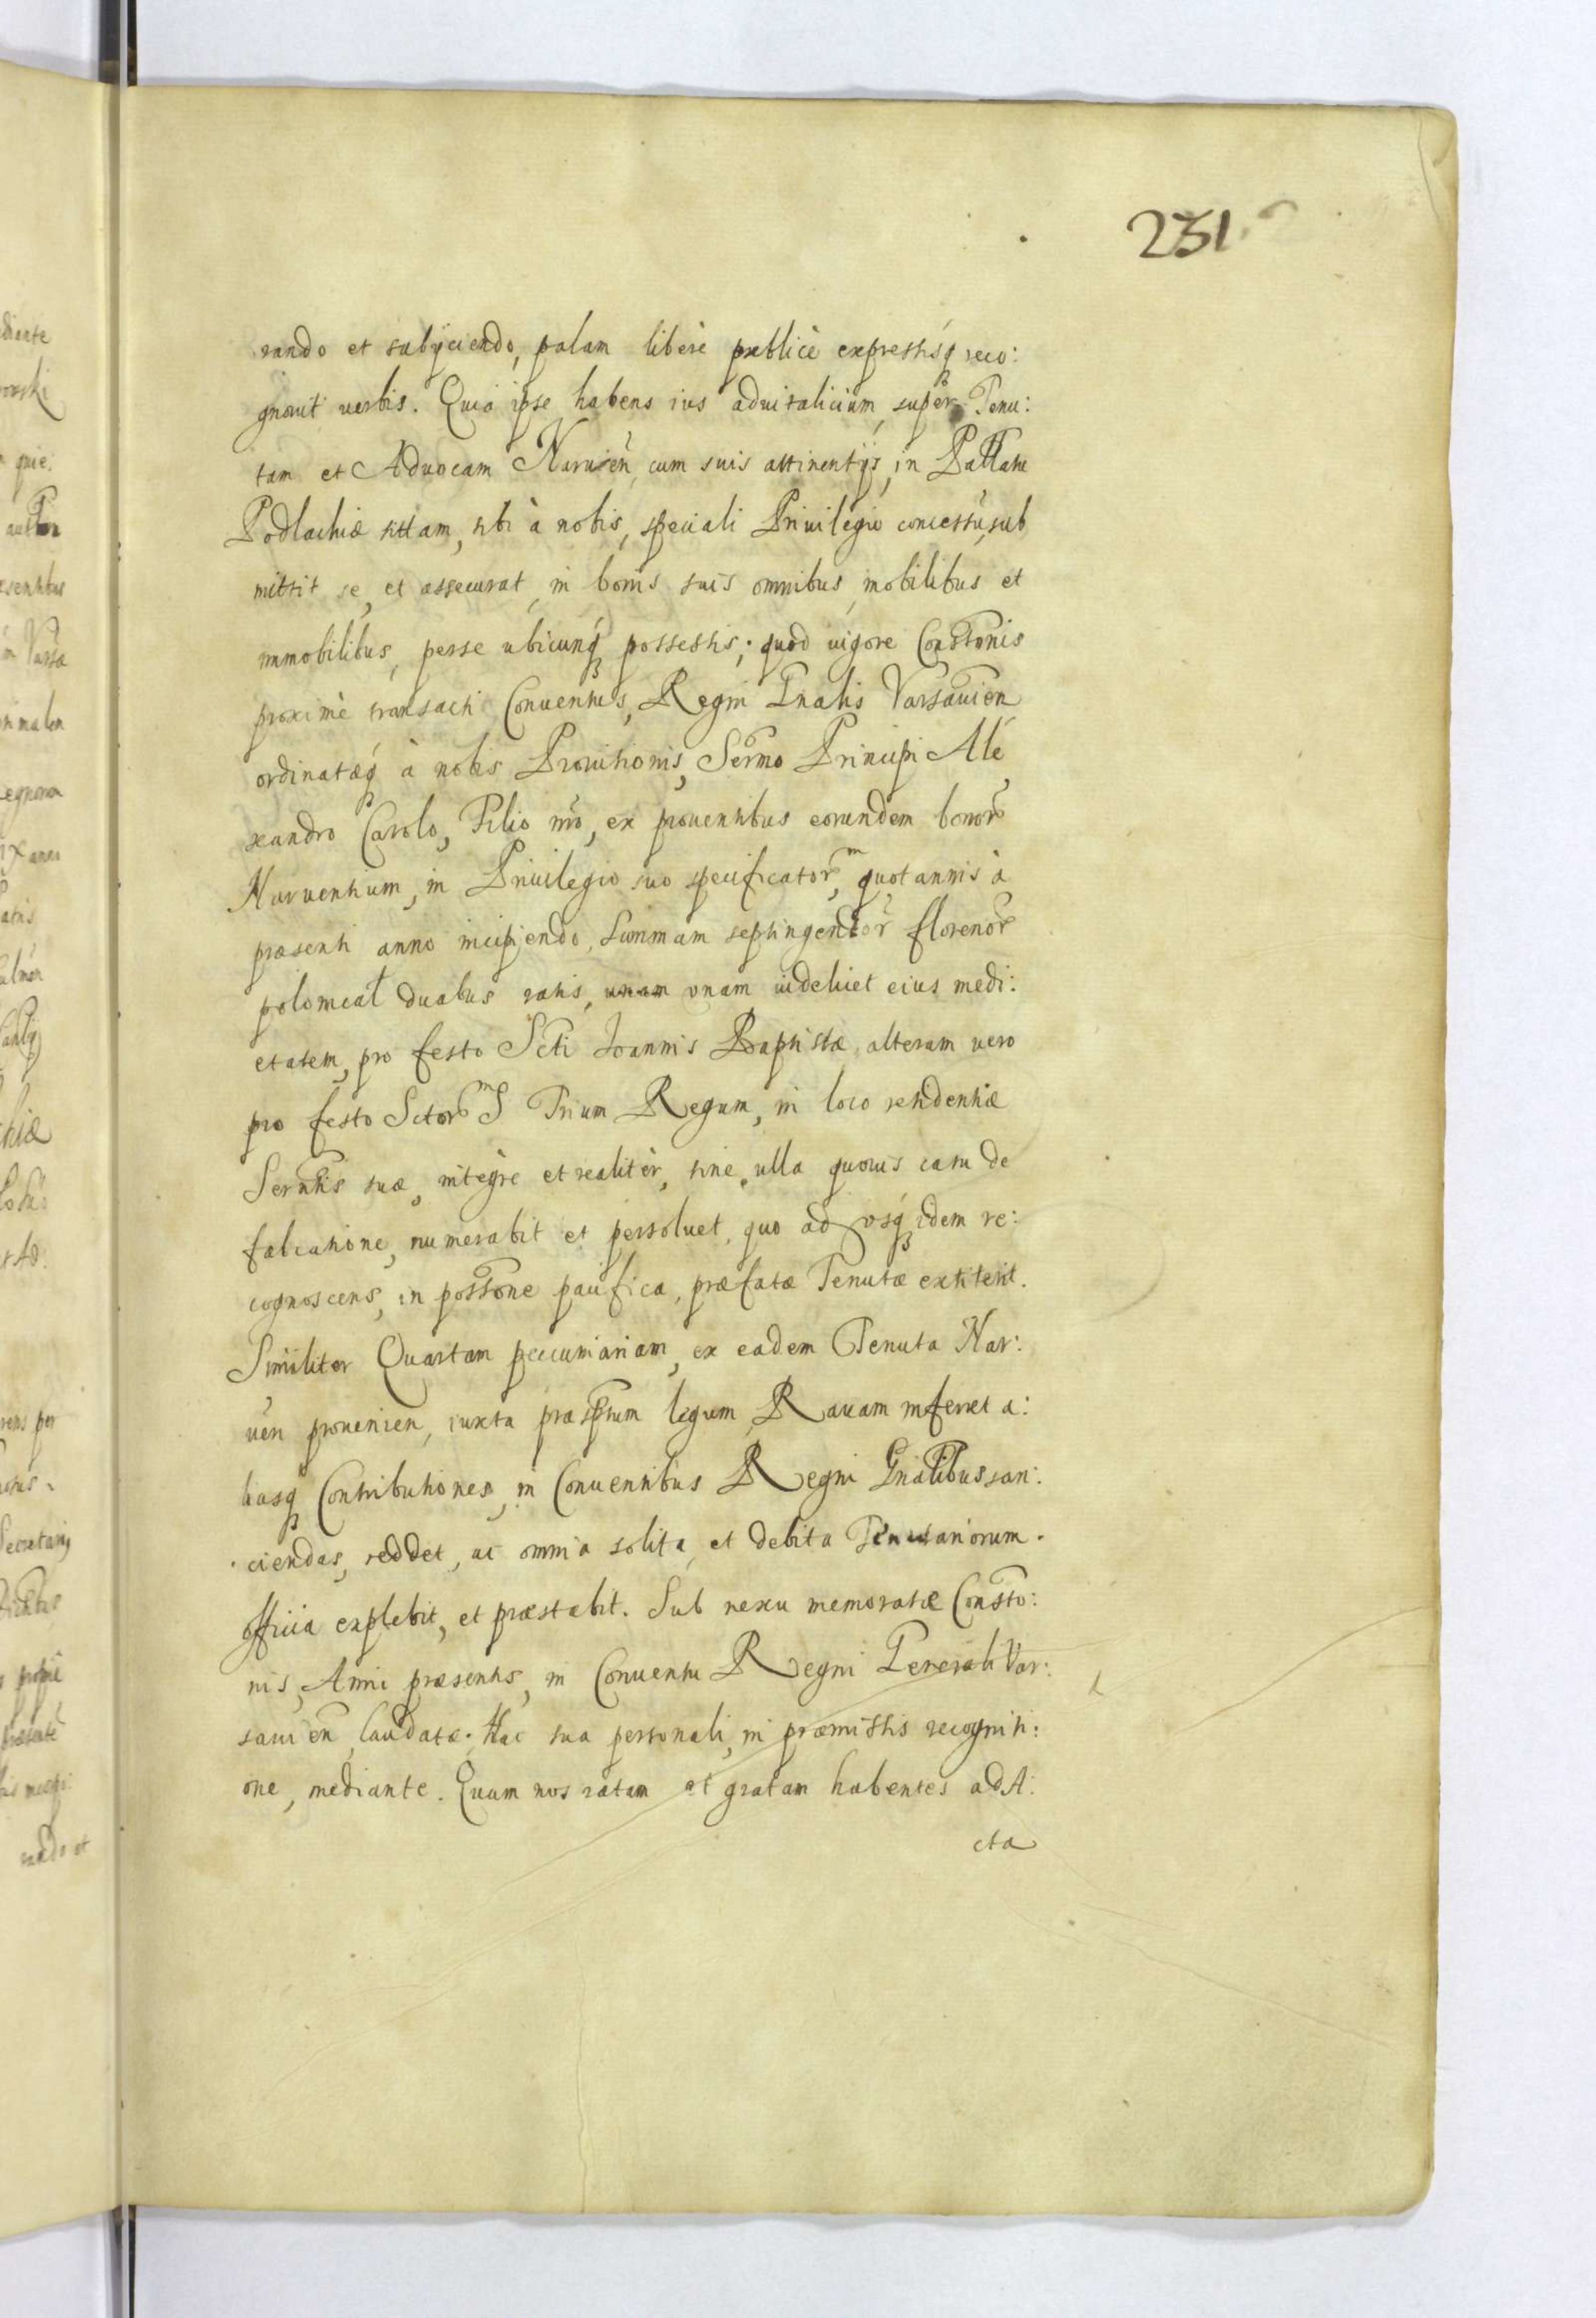 231
rando et subijciendo, palam liberè publicè expressisq reco:
gnouit verbis. Quia ipse habens ius aduitalicium, super Tenu:
tam et Aduocam Naruien, cum suis attinentijs, in Pallatu
Podlachiæ sittam, sibi à nobis, speciali Priuilegio concessu, sub
mittit se, et assecurat, in bonis suis omnibus, mobilibus et
immobilibus, perse ubicunq possessis; quod uigore Constonis
proximè transacti Conuentus, Regni Gnalis Varsauien
ordinatæq à nobis Prouisionis, Sermo Principi Ale
xandro Carolo, Filio nro, ex prouentibus eorundem bonor
Naruensium, in Priuilegio suo specificatorm, quotannis à
præsenti anno incipiendo, Summam septingentor florenor
polonical duabus ratis, unam vnam uidelicet eius medi:
etatem, pro festo Scti Ioannis Baptistæ, alteram vero
pro festo Sctorm S Trium Regum, in loco residentiæ
Serntis suæ, integrè et realitèr, sine ulla quouis casu de
falcatione, numerabit et persoluet, quo ad vsq idem re:
cognoscens, in possone pacifica, præfatæ Tenutæ extiterit.
Similiter Quartam pecuniariam, ex eadem Tenuta Nar:
uen prouenien, iuxta præsptum legum, Rauam inferret a:
liasq Contributiones, in Conuentibus Regni Gnalibus san:
ciendas, reddet, ac omnia solita, et debita Tenutariorum
officia explebit, et præstabit. Sub nexu memoratæ Consto:
nis, Anni præsentis, in Conuentu Regni Generali Var:
sauien, laudatæ. Hac sua personali, in præmissis recogniti:
one, mediante. Quam nos ratam et gratam habentes ad A:
cta